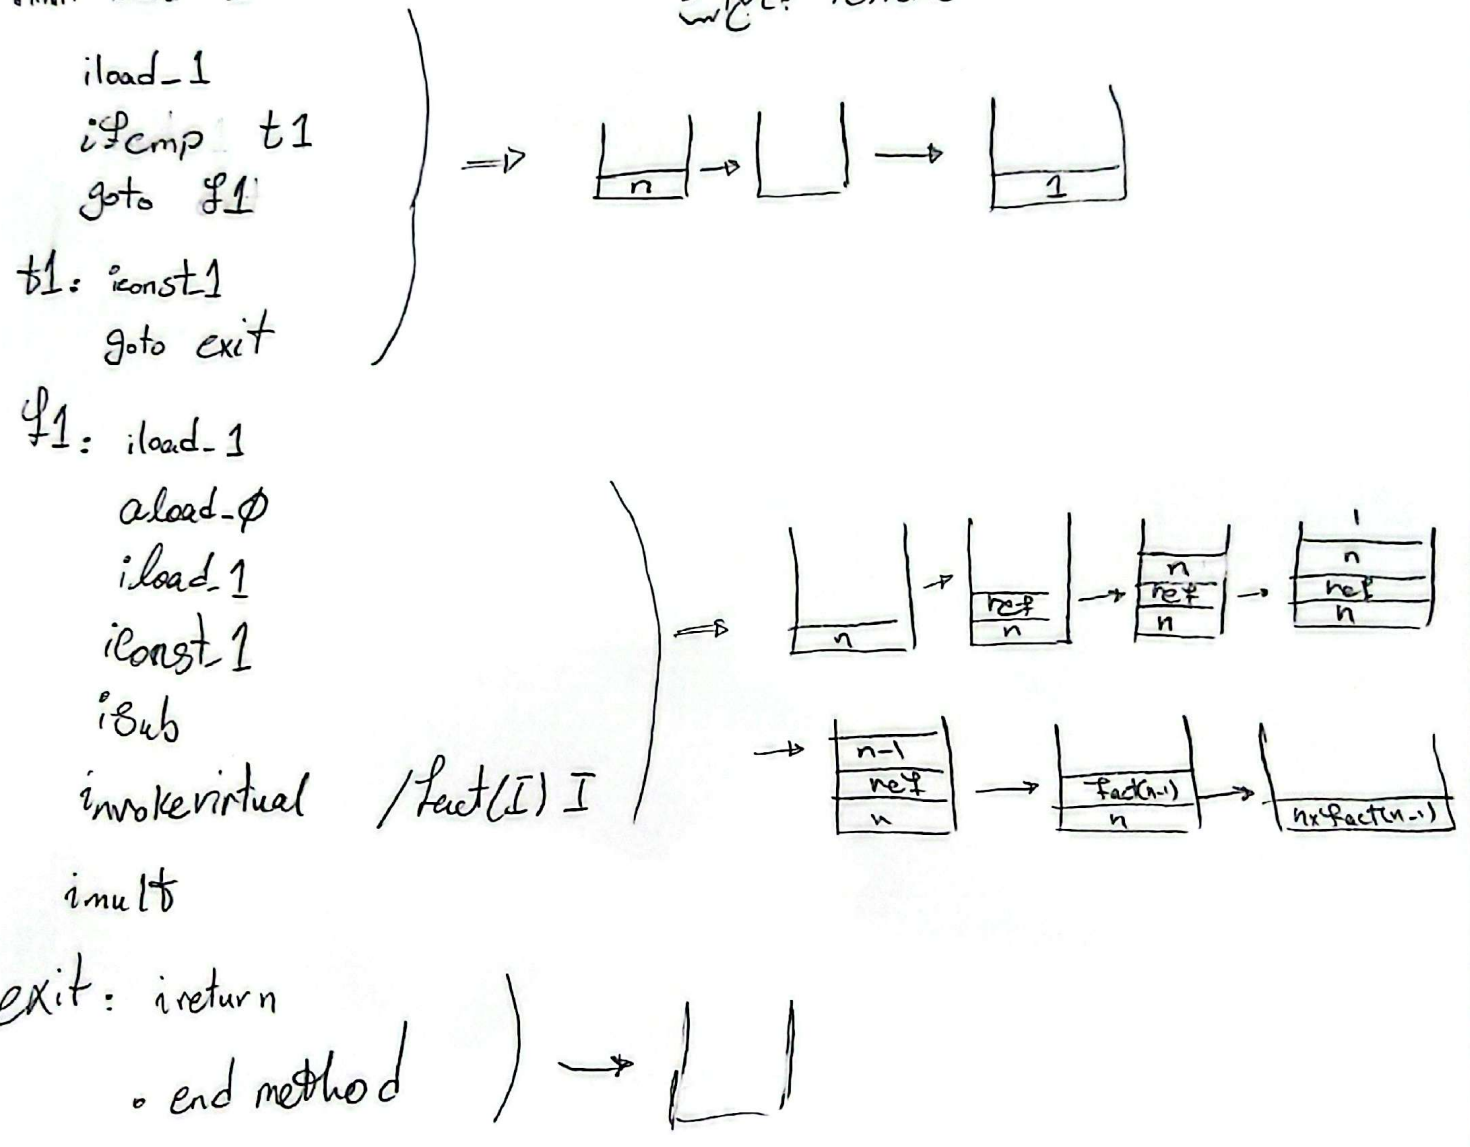 iload_1
ifcmp t1
goto f1
n
1
t1: iconst1
goto exit
f1: iload_1
aload_0
iload_1
iconst_1
isub
invokevirtual /fact(I) I
n
ref
n
n
ref
n
1
n
ref
n
n-1
ref
n
fact(n-1)
n
nxfact(n-1)
imult
exit: ireturn
. end method